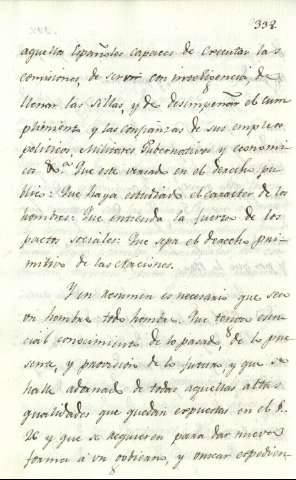 332.
aquellos Españoles capaces de executar las
comisiones, de servir con inteligencia, de
llenar las sillas, y de desempeñar el cum-
plimiento y las confianzas de sus empleos
politicos, Militares Gubernativos y economi-
cos &ª. Que este versado en el derecho pu-
blico: Que haya estudiado el caracter de los
hombres: Que entienda la fuerza de los
pactos sociales: Que sepa el derecho pri-
mitivo de las Naciones.
Y en resumen es necesario que sea
un hombre todo hombre. Que tenga esen-
cial conocimiento de lo pasado, de lo pre-
sente, y prevision de lo futuro, y que se
halle adornado de todas aquellas altas
qualidades que quedan expuestas en el §.
y que se requieren para dar nueva
forma á un gobierno, y